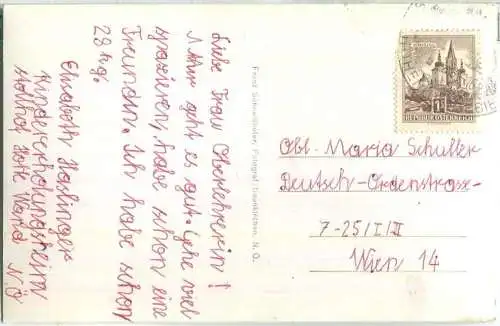 Liebe Frau Oberlehrerin!
Mir geht es gut. Gehe viel
spazieren, habe schon eine
Freundin. Ich habe schon
28 kg.
Elisabeth Haslinger
Kindererholungsheim
N.Ö
Franz Schneeweis, Fotograf Traunkirchen, N. Ö.
REPUBLIK ÖSTERREICH
Obl. Maria Schuller
Deutsch-Ordenstrasse
7-25/I/II
Wien 14